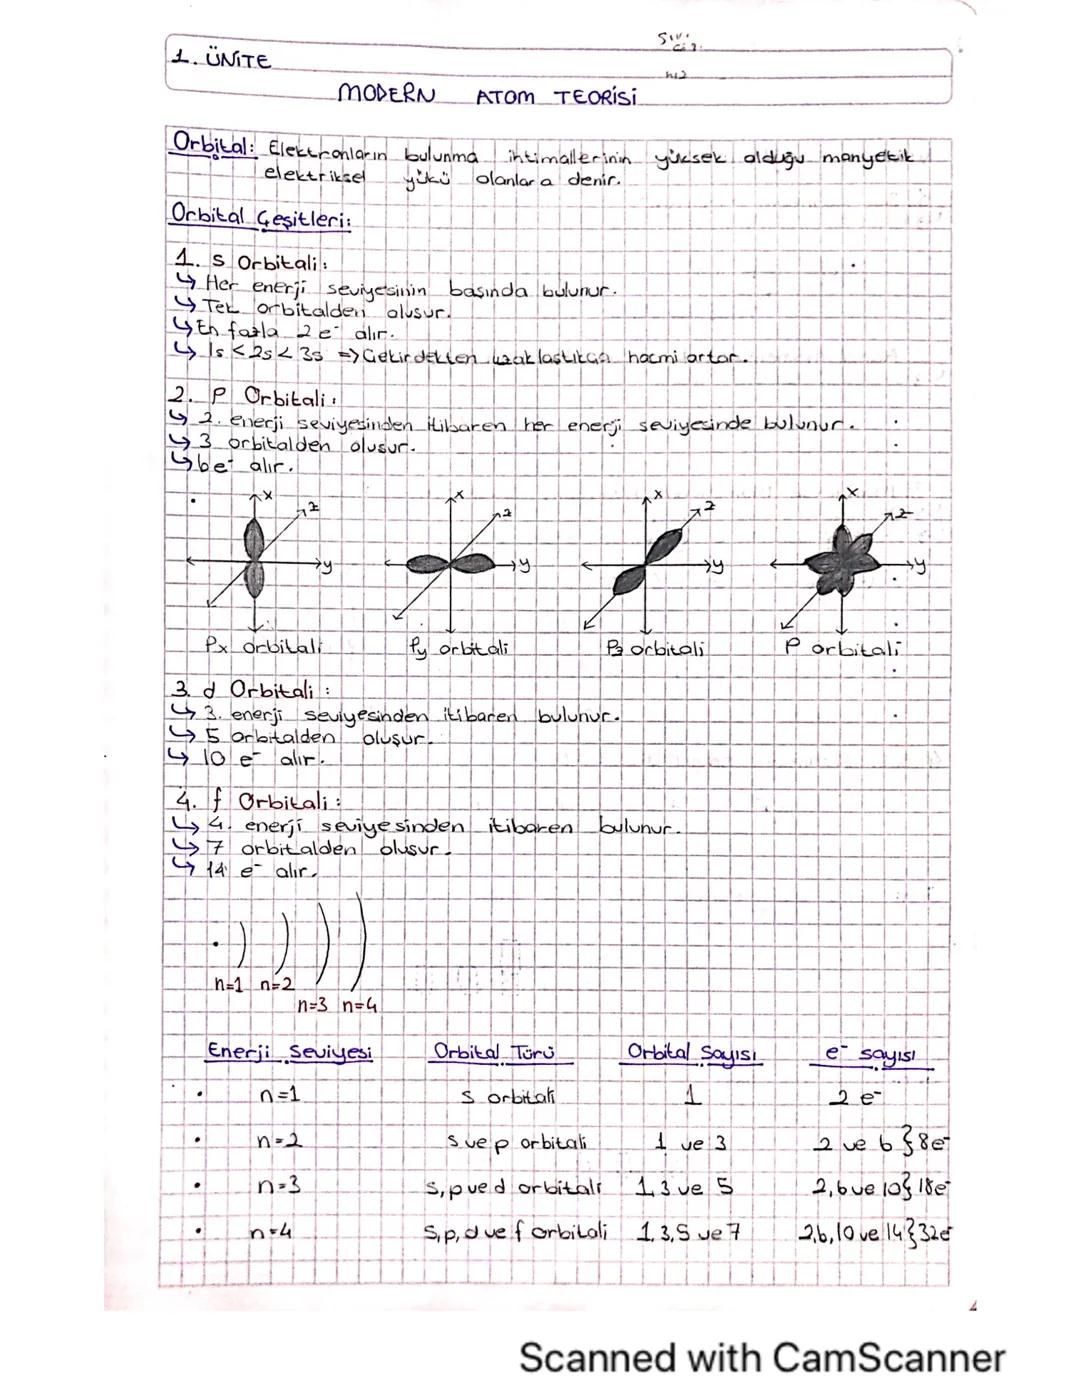 1. ÜNİTE
MODERN ATOM TEORİSİ
Orbital: Elektronların bulunma ihtimallerinin yüksek olduğu manyetik
elektriksel yükü olanlara denir.
Orbital Çeşitleri:
1. s Orbitali:
↳ Her enerji seviyesinin başında bulunur.
↳ Tek orbitalden oluşur.
↳ En fazla 2 e⁻ alır.
↳ 1s < 2s < 3s ⇒ Çekirdekten uzaklaştıkça hacmi artar.
2. P Orbitali:
↳ 2. enerji seviyesinden itibaren her enerji seviyesinde bulunur.
↳ 3 orbitalden oluşur.
↳ 6 e⁻ alır.
x z y x z y x z y x z y
Px orbitali Py orbitali Pz orbitali P orbitali
3. d Orbitali:
↳ 3. enerji seviyesinden itibaren bulunur.
↳ 5 orbitalden oluşur.
↳ 10 e⁻ alır.
4. f Orbitali:
↳ 4. enerji seviyesinden itibaren bulunur.
↳ 7 orbitalden oluşur.
↳ 14 e⁻ alır.
n=1 n=2
n=3 n=4
Enerji Seviyesi Orbital Türü Orbital Sayısı e⁻ sayısı
• n=1 s orbitali 1 2 e⁻
• n=2 s ve p orbitali 1 ve 3 2 ve 6 }8e⁻
• n=3 s, p ve d orbitali 1,3 ve 5 2,6 ve 10} 18e⁻
• n=4 s, p, d ve f orbitali 1,3,5 ve 7 2,6,10 ve 14 }32e⁻
Scanned with CamScanner